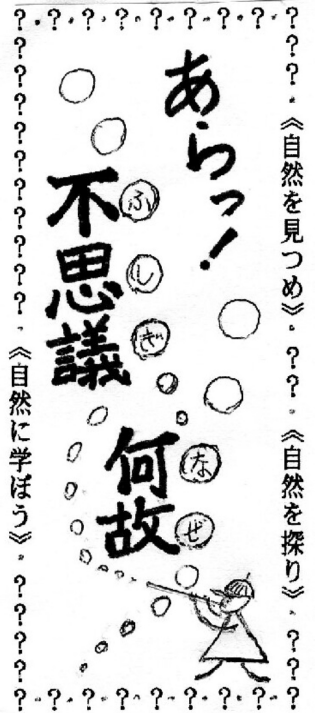 ?・?・?・?・?・?・?・?・?
??・《自然を見つめ》・??・《自然を探り》・???
あらっ!
不思議
ふしぎ
何故
なぜ
?????????・《自然に学ぼう》・????
?・?・?・?・?・?・?・?・?